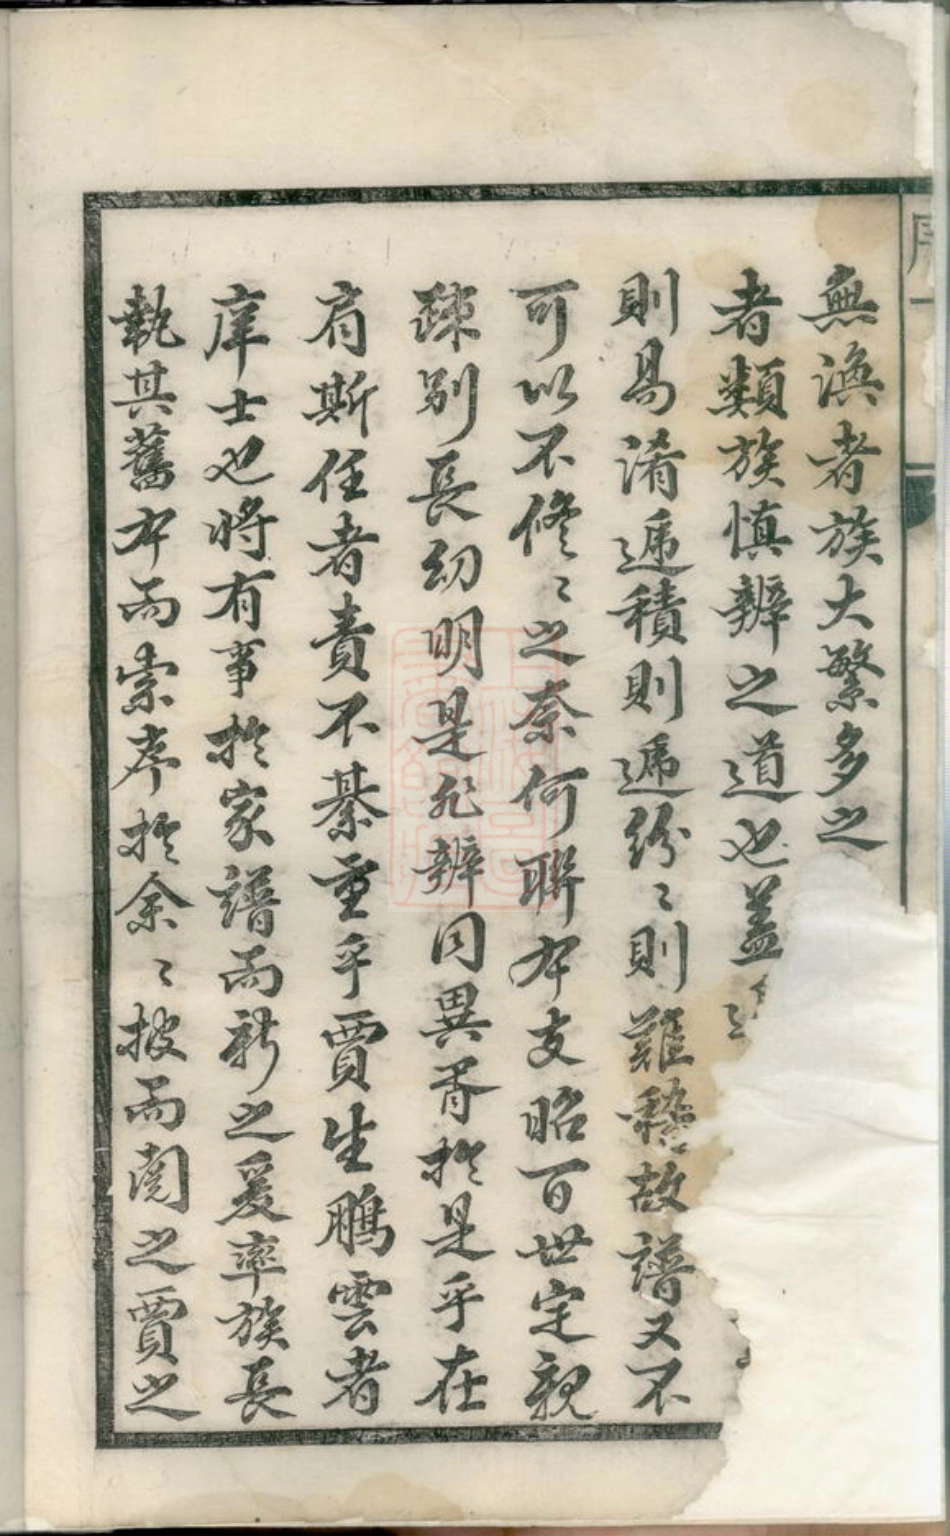 無渙者族大繁多之
者類族慎辨之道也蓋
則易淆遞積則遞紛〻則難稽故譜又不
可以不修〻之奈何聯本支昭百世定親
疎別長幼明是非辨同異胥扵是乎在
肩斯任者責不綦重乎賈生鵬雲者
庠士也将有事扵家譜而新之爰率族長
執其舊本而索序扵余〻披而閱之賈之
序